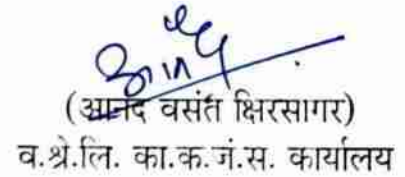 (आनंद वसंत क्षिरसागर)
व.श्रे.लि. का.क.जं.स. कार्यालय